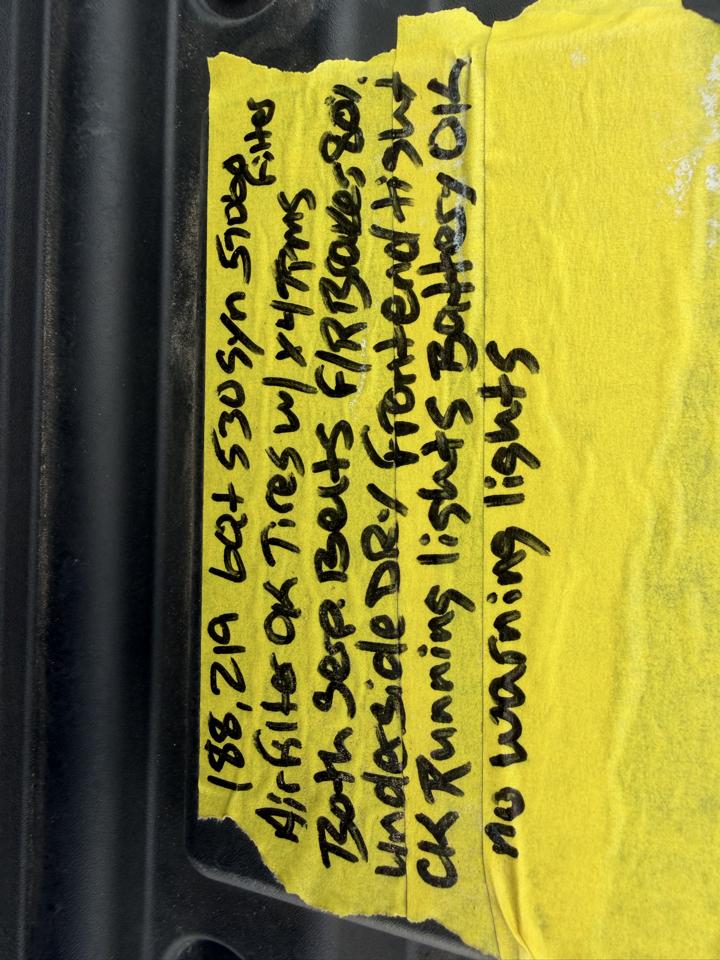 188,219 6qt 530 syn 5706P
filter
Air filter OK Tires w/x4 TPMS
Both Serp. Belts F/R Brakes 80%
Underside DRy frontend tight
CK Running lights Battery OK
no warning lights